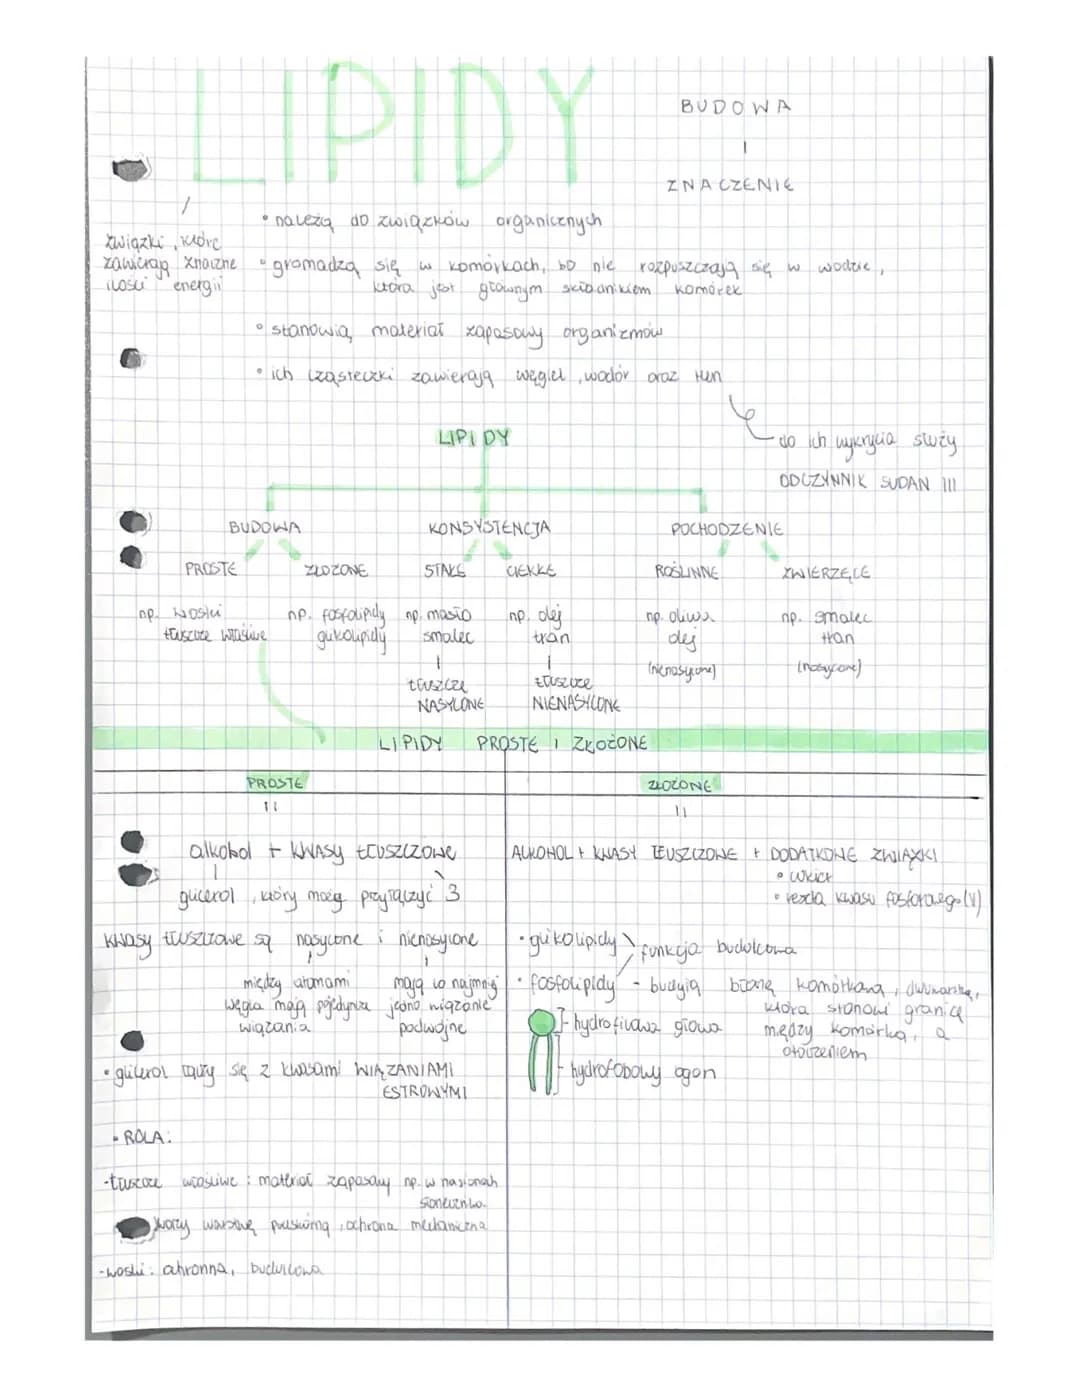 LIPIDY
BUDOWA
|
ZNACZENIE
związki, które
zawierają znaczne
ilości energii
• należą do związków organicznych
• gromadzą się w komórkach, bo nie rozpuszczają się w wodzie,
która jest głównym składnikiem komórek
• stanowią materiał zapasowy organizmów
• ich cząsteczki zawierają węgiel, wodór oraz tlen
do ich wykrycia służy
ODCZYNNIK SUDAN III
LIPIDY
BUDOWA KONSYSTENCJA POCHODZENIE
PROSTE ZŁOŻONE STAŁE CIEKŁE ROŚLINNE ZWIERZĘCE
np. woski np. fosfolipidy np. masło np. olej np. oliwa np. smalec
tłuszcze właściwe glikolipidy smalec tran olej tran
(nienasycone) (nasycone)
tłuszcze tłuszcze
NASYCONE NIENASYCONE
LIPIDY PROSTE I ZŁOŻONE
PROSTE
alkohol + KWASY tłUSZCZOWE
glicerol, który może przyłączyć 3
KWASY tłUSZCZOWE są nasycone i nienasycone
między atomami
węgla mają pojedyncze
wiązania
mają co najmniej
jedno wiązanie
podwójne
• glicerol łączy się z kwasami WIĄZANIAMI
ESTROWYMI
• ROLA:
-tłuszcze właściwe: materiał zapasowy np. w nasionach
słonecznika.
tworzy warstwę podskórną, ochrona mechaniczna
-woski: ochronna, budulcowa
ZŁOŻONE
ALKOHOL + KWASY TŁUSZCZOWE + DODATKOWE ZWIĄZKI
• cukier
• reszta kwasu fosforowego (V)
• glikolipidy
funkcja budulcowa
• fosfolipidy - budują błonę komórkową, dwuwarstwę,
która stanowi granicę
między komórką, a
otoczeniem
hydrofilowa głowa
hydrofobowy ogon